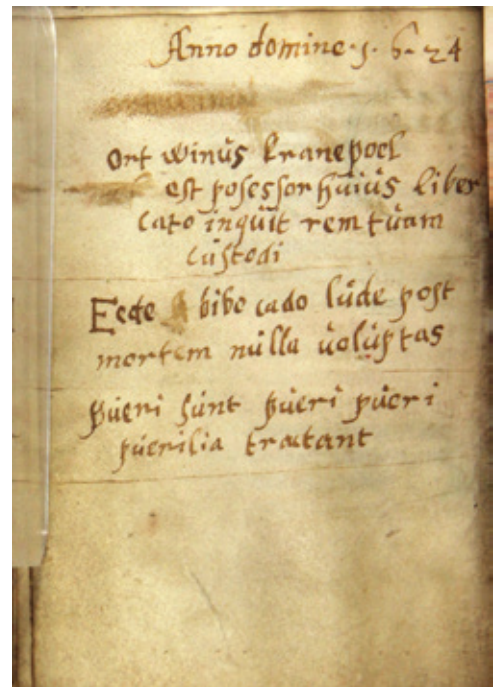 Anno domine · 1 · 6 · 24
Ort winús kranepoel
est posessor húiús liber
cato inqúit rem túam
cústodi
Eede bibo cado lúde post
mortem núlla úolúptas
púeri súnt púeri púeri
púerilia tractant